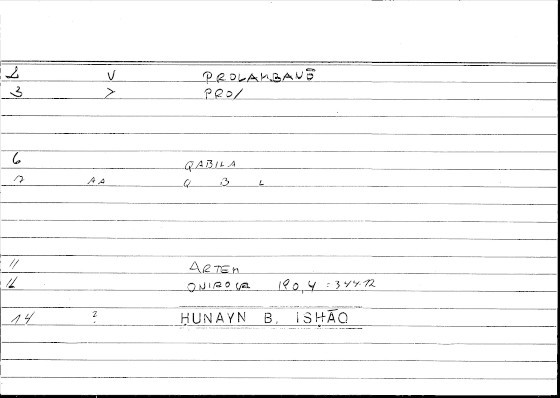 2 V PROLAMBANŌ
3 > PRO/
6 QABILA
7 AA Q B L
11 ARTEM
12 ONIROCR 190,4 : 344 12
14 ? ḤUNAYN B. ISḤĀQ